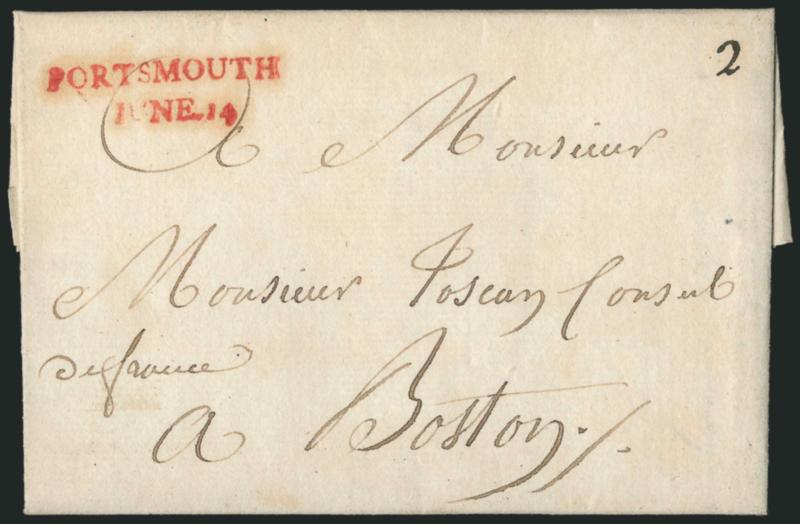 PORTSMOUTH
IUNE.14
2
A Monsieur
Monsieur Toscan Consul
de france
a Boston